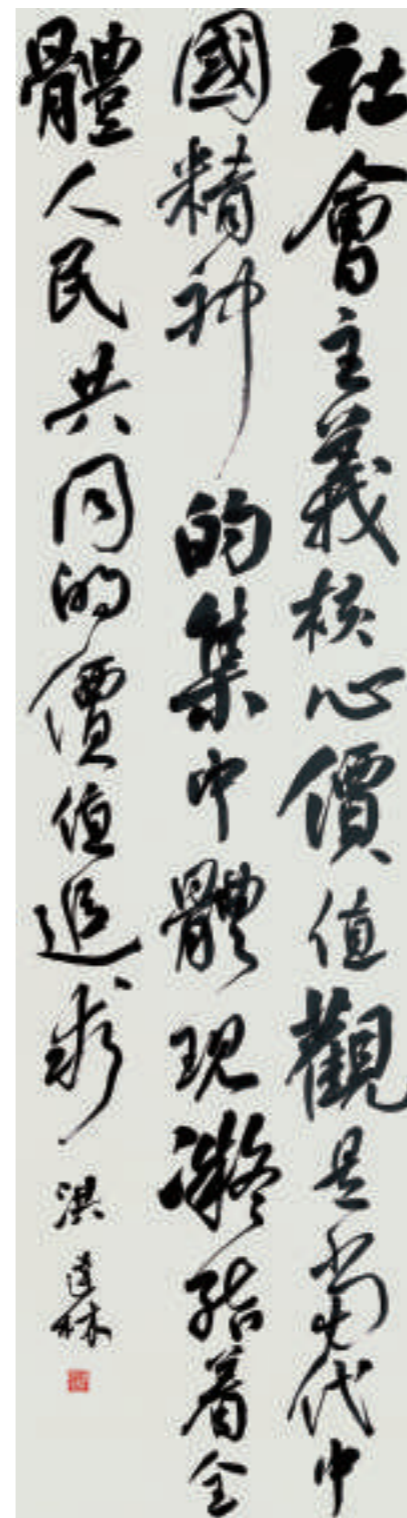 社會主義核心價值觀是當代中
國精神的集中體現凝結着全
體人民共同的價值追求
洪道林